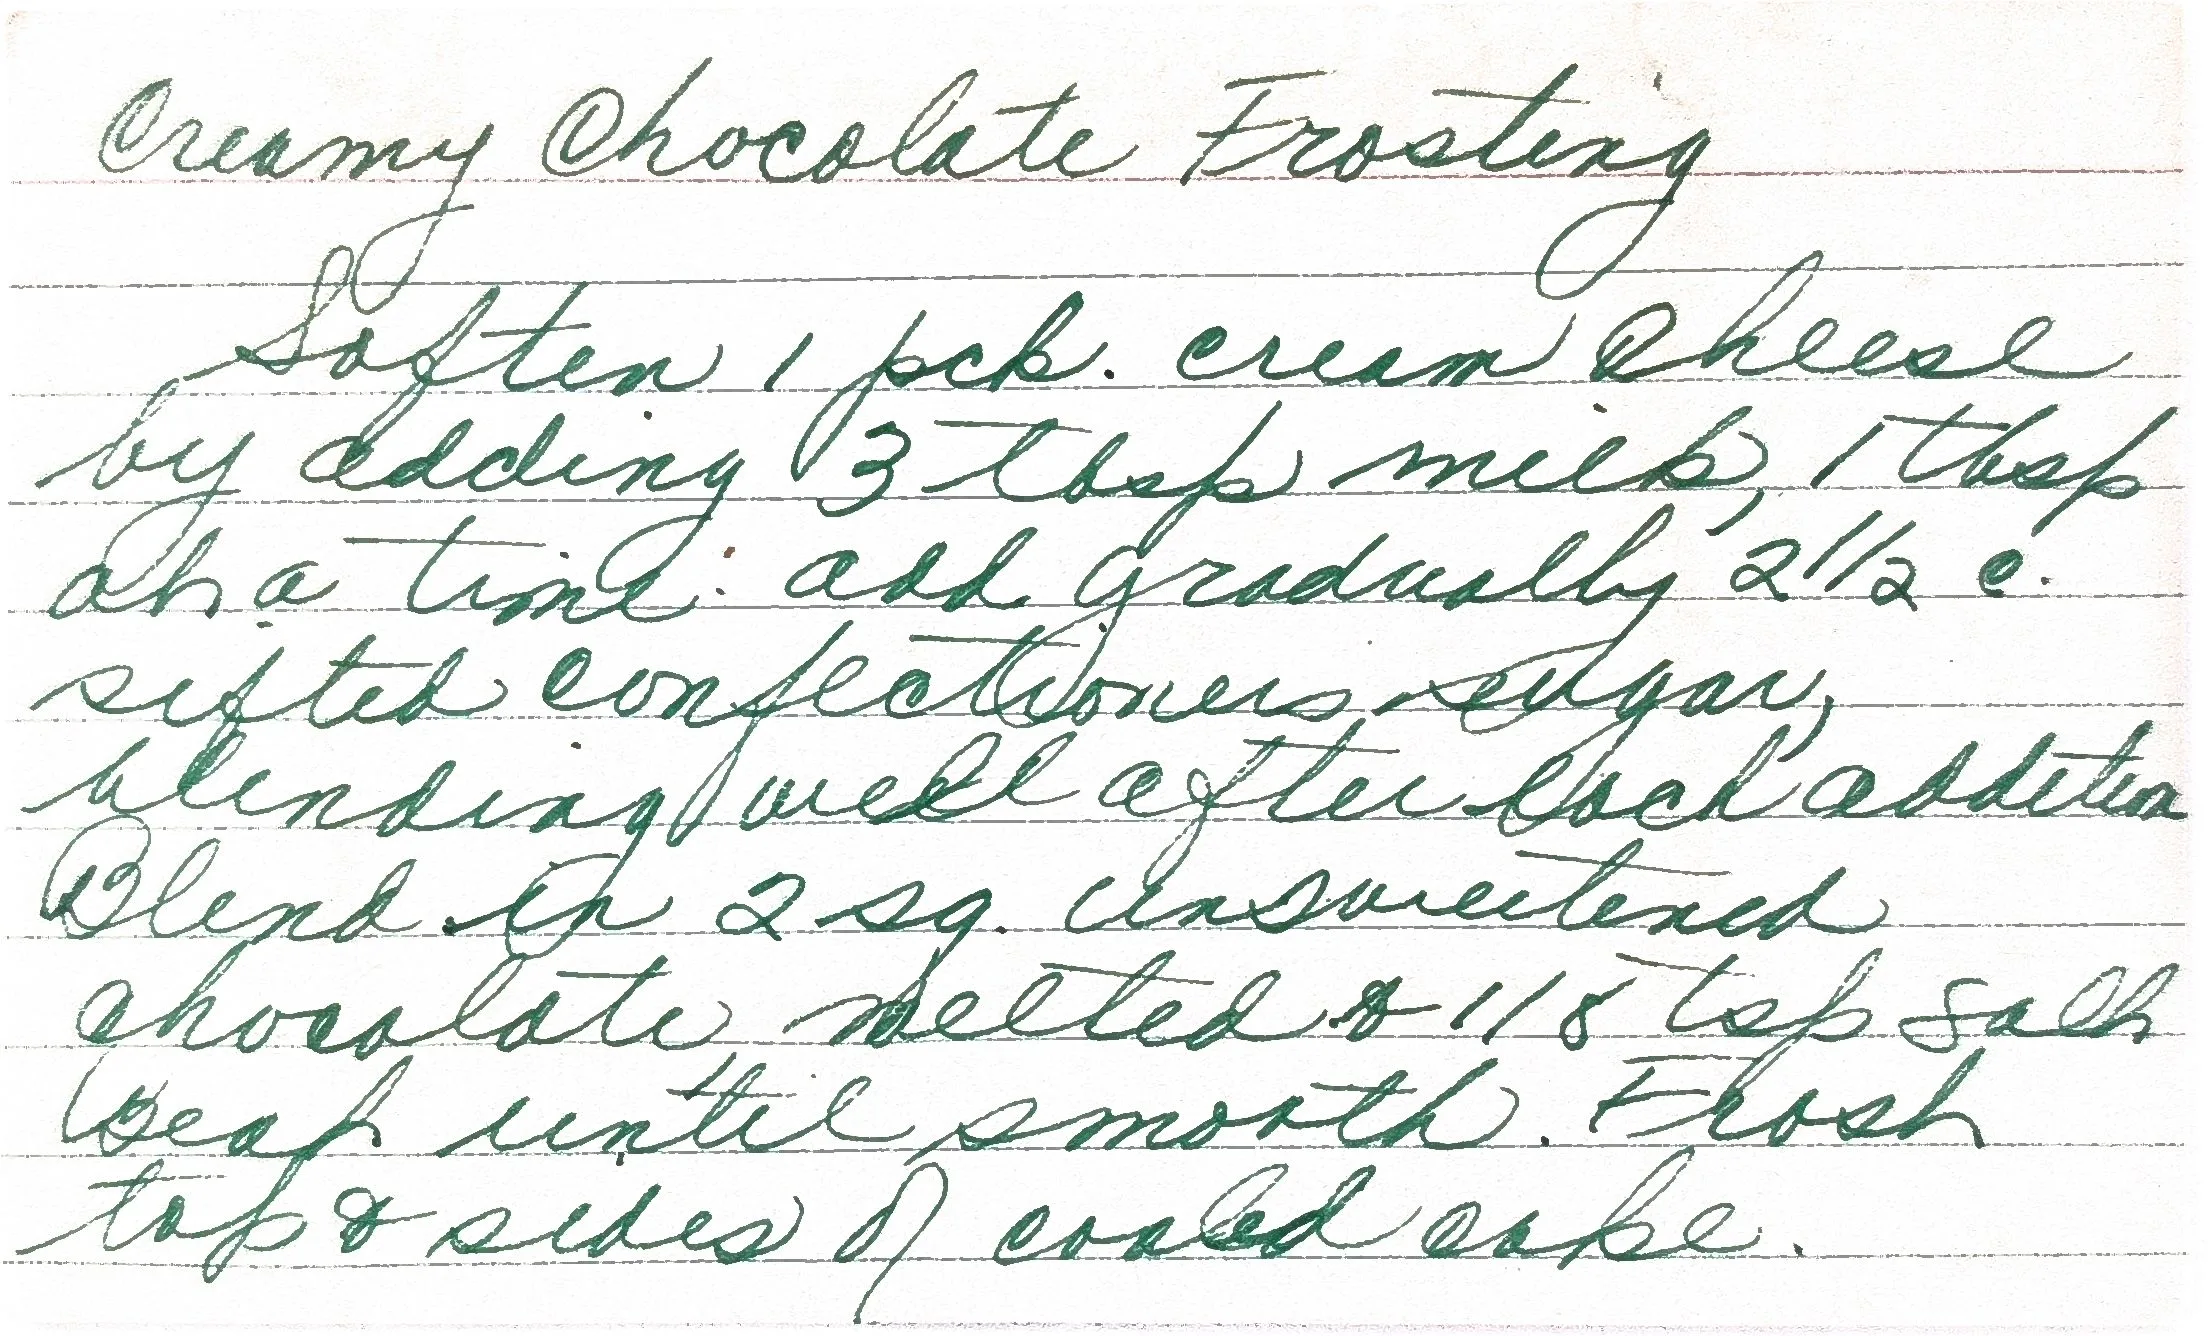 Creamy Chocolate Frosting
Soften 1 pck. cream cheese
by adding 3 tbsp milk, 1 tbsp
at a time. add gradually 2 1/2 c.
sifted confectioners sugar,
blending well after each addition
Blend in 2 sq. unsweetened
chocolate, melted & 1/8 tsp salt
Beat until smooth. Frost
top & sides of cooled cake.